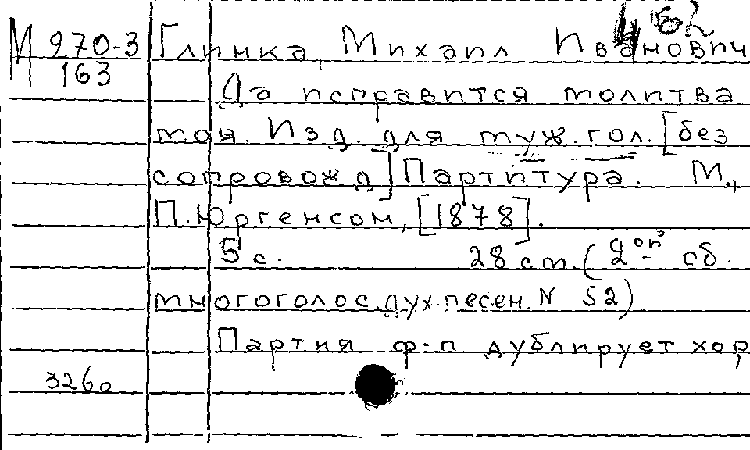 462
М 970-3
163
Глинка, Михаил Иванович
Да исправится молитва
моя. Изд. для муж. гол. [без
сопровожд.] Партитура. М.,
П. Юргенсон, [1878].
5 с. 28 см. (2оп сб.
многоголос. дух. песен. N 52)
Партия ф-п дублирует хор
3260